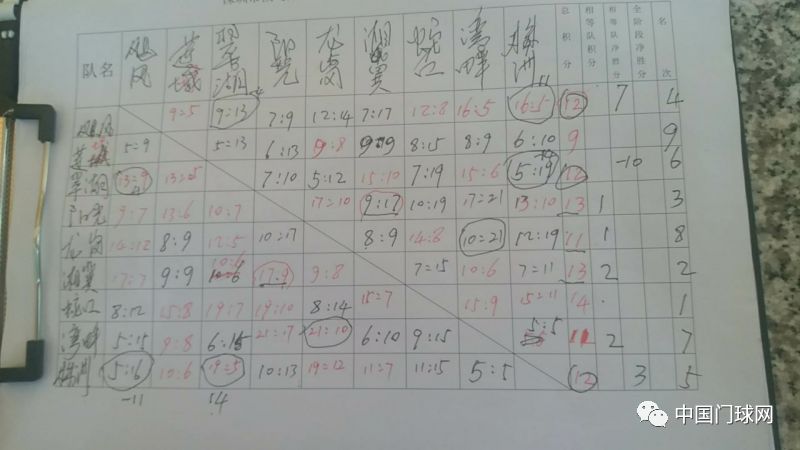 队名 飓风 莲城 翠湖 阳光 龙岗 湘冀 蛇口 湾畔 株洲 总积分 相等队积分 相等队净胜分 全阶段净胜分 名次
飓风 9=5 9:13 7:9 12:14 7:17 12:8 16:5 16:5 12 7 4
莲城 5=9 5=13 6:13 9:8 9:9 8:15 8:9 6:10 9 9
翠湖 13=9 13=5 7:10 5:12 15:10 7:19 15:6 5:19 12 -10 6
阳光 9:7 13:6 10:7 17=10 9:17 10:19 17=21 13:10 13 1 3
龙岗 14=12 8:9 12:5 10=17 8:9 14:8 10=21 12:19 11 1 8
湘冀 17=7 9:9 10:6 17:9 9=8 7=15 10:6 7=11 13 2 2
蛇口 8:12 15:8 19:7 19:10 8:14 15=7 15:9 15=11 14 1
湾畔 5:15 9:8 6:15 21=17 21=10 6:10 9:15 5:5 11 2 7
株洲 5:16 10:6 19=5 10:13 19=12 11=7 11:15 5:5 12 3 5
-11 14
中国门球网